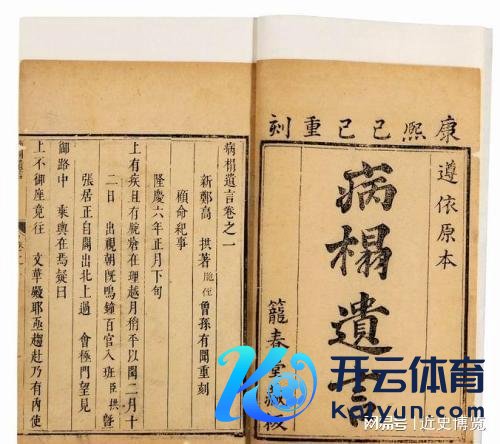 康熙己巳重刻
遵依原本
病榻遺言
籠春堂藏板
病榻遺言卷之一
新鄭高 拱著 胞侄曾孫有聞重刻
顧命紀事
隆慶六年正月下旬
上有疾且有腕瘡在理越月稍平以閏二月十
二日 出視朝旣鳴鐘百官入班臣拱暨
張居正自閣出北上過 會極門望見
御路中 乘輿在焉疑曰
上不御座竟往 文華殿耶亟趨赴乃有內使
开云体育
kaiyun.com
网易号 | 近史博览